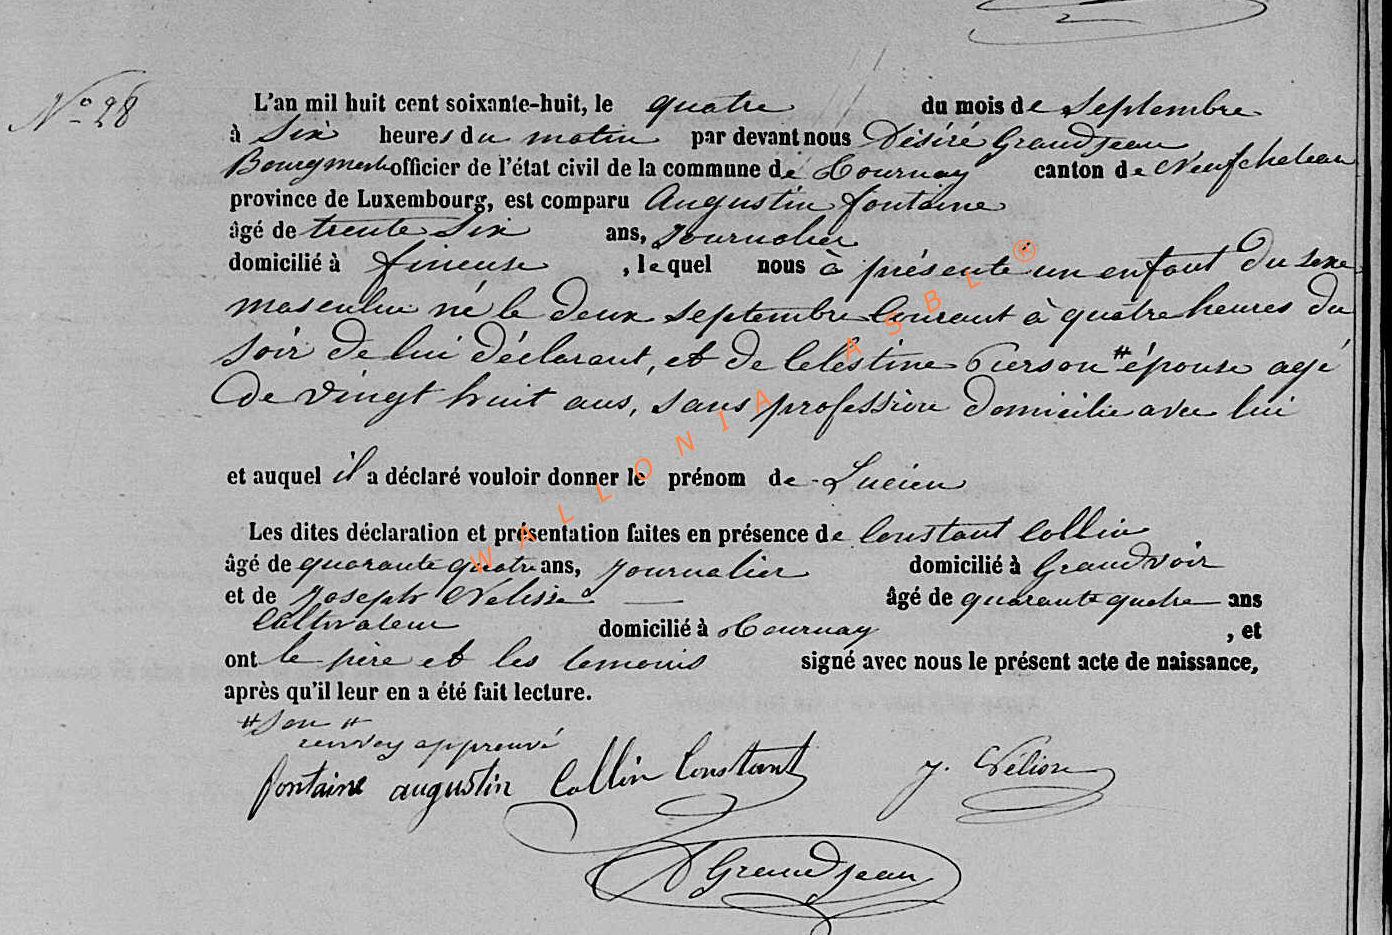 N° 28
L'an mil huit cent soixante-huit, le quatre du mois de Septembre
à Six heures du matin par devant nous Désiré Grandjean
Bourgmest officier de l'état civil de la commune de Tournay canton de Neufchateau
province de Luxembourg, est comparu Augustin fontaine
âgé de trente Six ans, Journalier
domicilié à fineuse, lequel nous à présenté un enfant Du sexe
masculin né le Deux Septembre Courant à quatre heures Du
Soir De lui Déclarant, et De Célestine Pierson # épouse agé
De vingt huit ans, Sans profession Domicilie avec lui
et auquel il a déclaré vouloir donner le prénom de Lucien
Les dites déclaration et présentation faites en présence de Constant Collin
âgé de quarante quatre ans, Journalier domicilié à Grandvoir
et de Joseph Nelisse âgé de quarante quatre ans
Cultivateur domicilié à Tournay, et
ont le père et les temoins signé avec nous le présent acte de naissance,
après qu'il leur en a été fait lecture.
# Son #
renvoy approuvé
fontaine augustin Collin Constant J. Nélisse
D Grandjean
WALLONIA ASBL ®